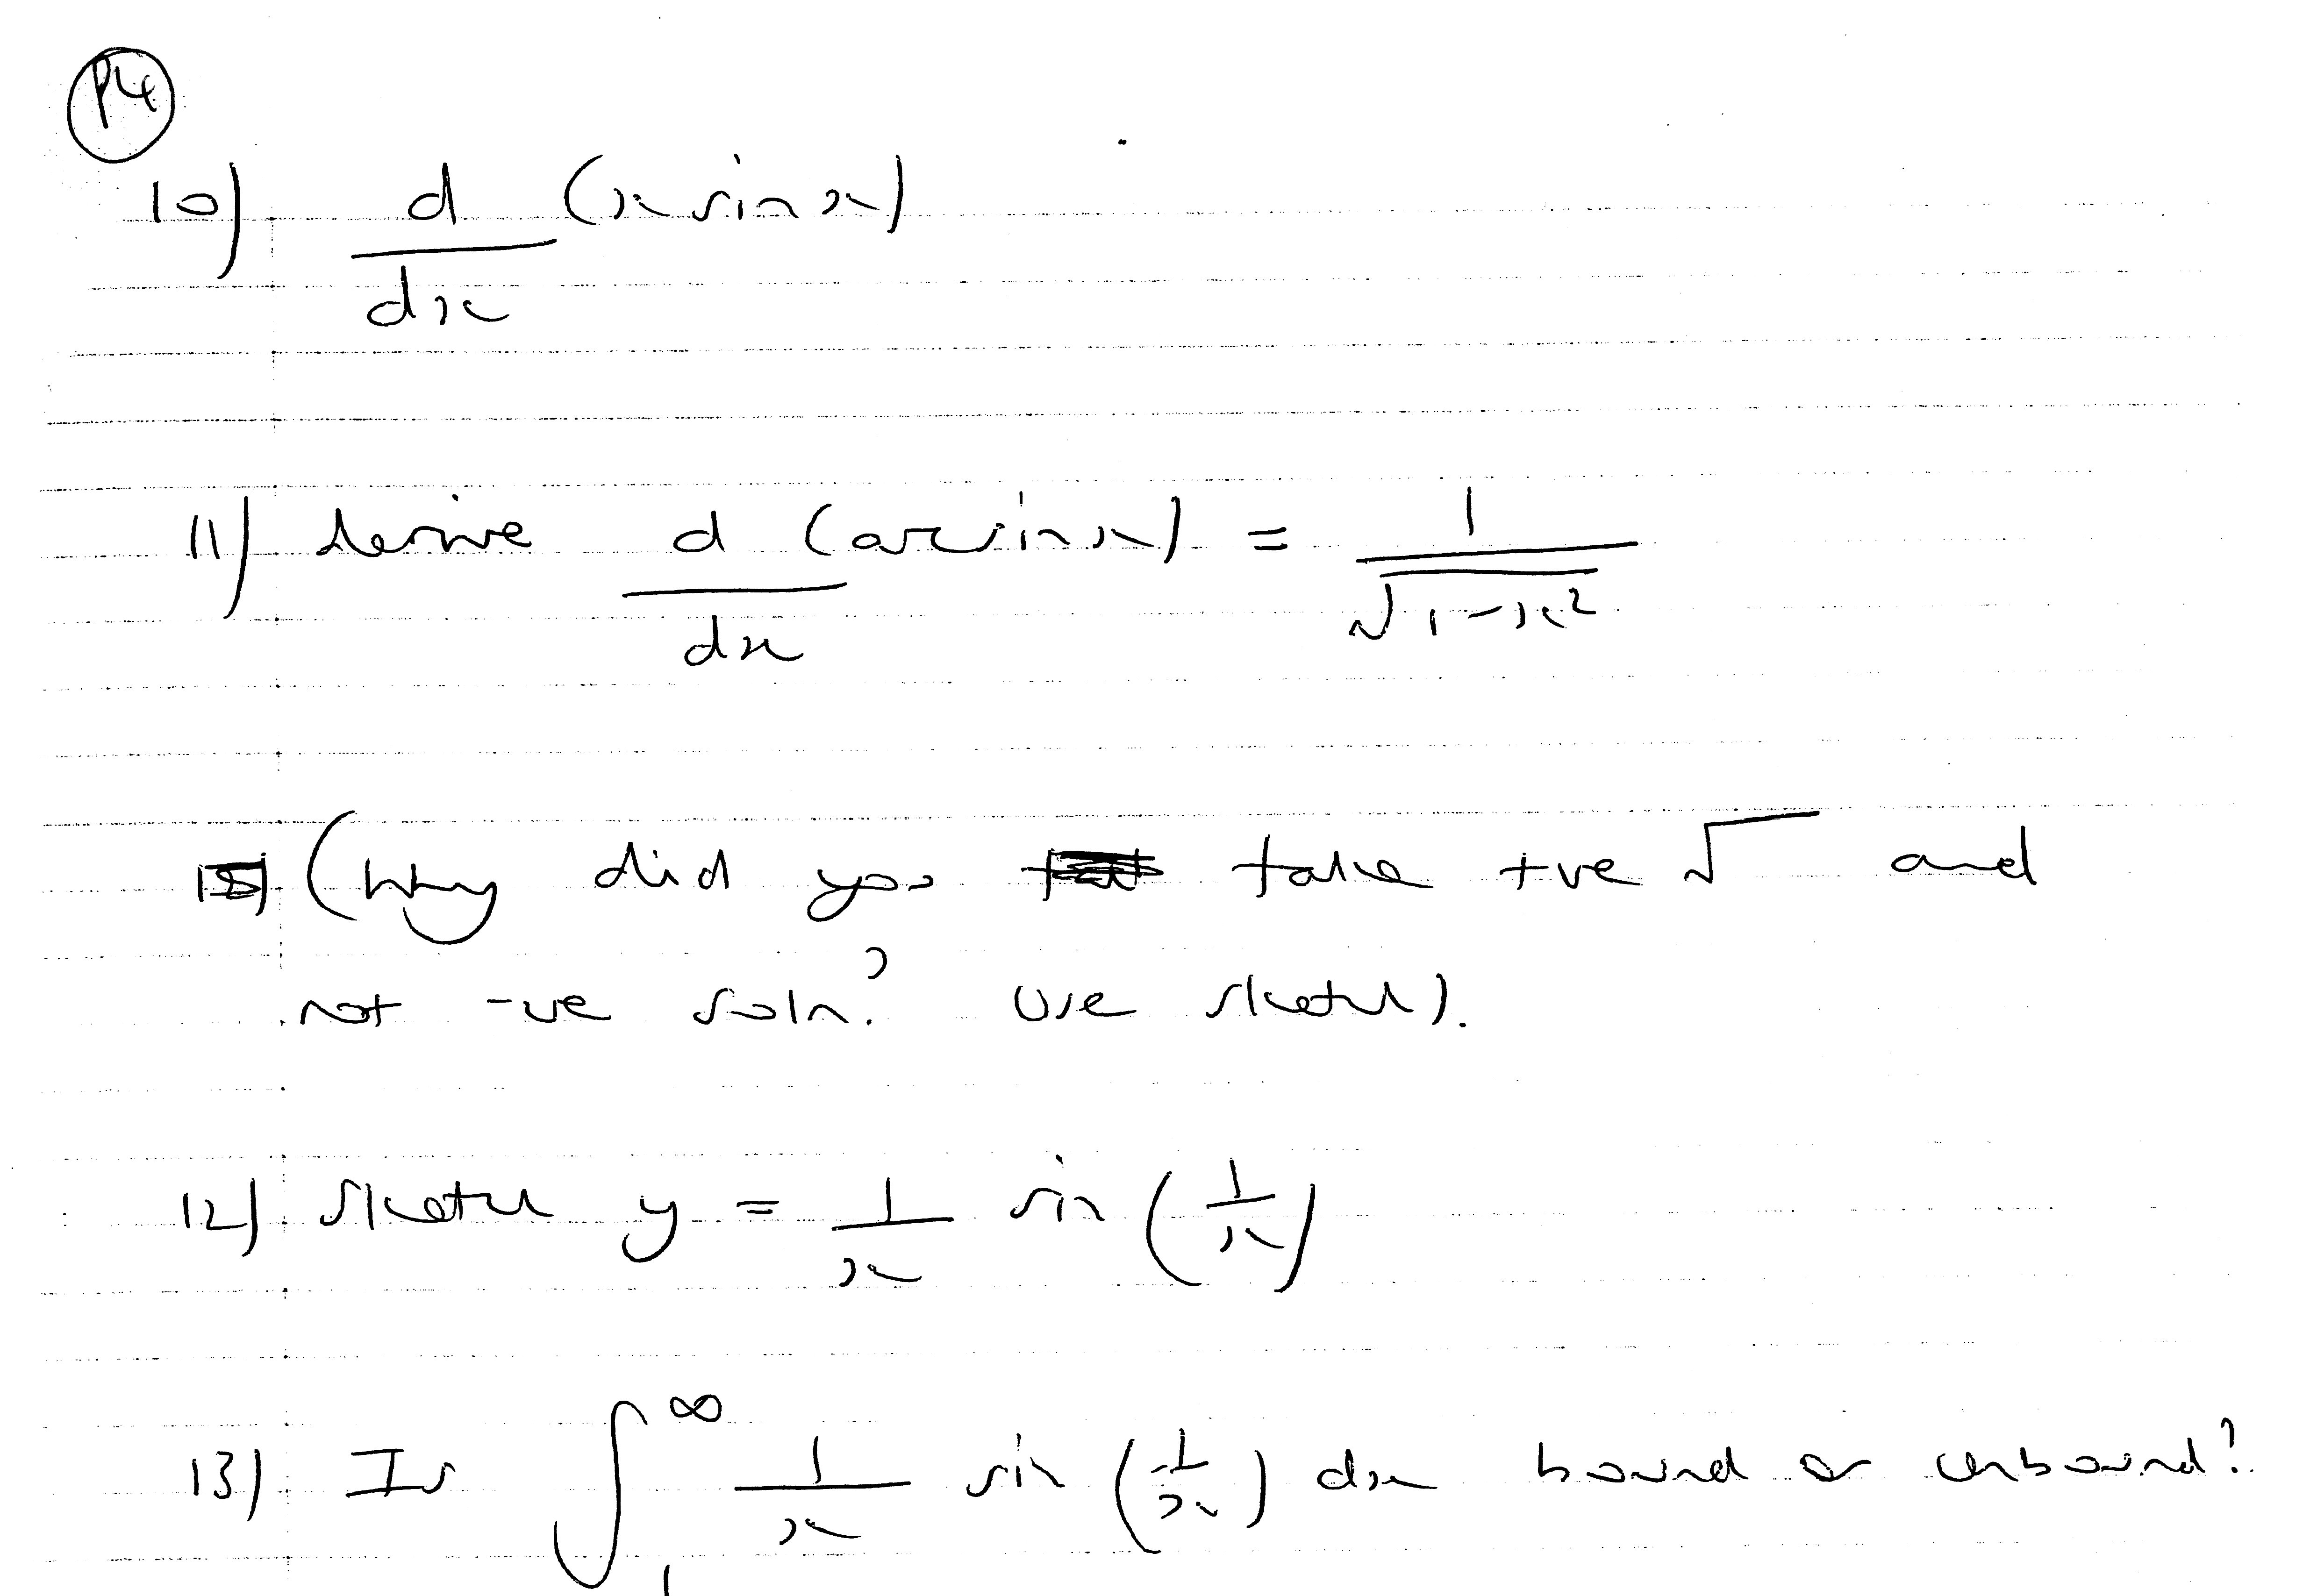 P4
10) d/dx (x sin x)
11) derive d/dx (arcsin x) = 1/√(1-x²)
(Why did you take +ve √ and
not -ve soln? Use sketch).
12) sketch y = 1/x sin (1/x)
13) Is ∫₁^∞ 1/x sin (1/x) dx bound or unbound?